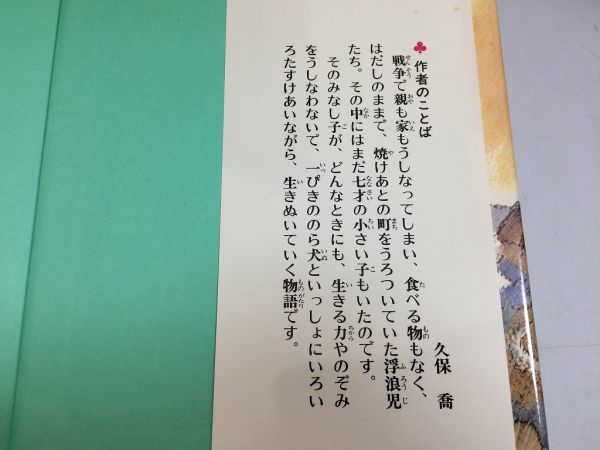 ♣作者のことば
久保 喬
戦争で親も家もうしなってしまい、食べる物もなく、
はだしのままで、焼けあとの町をうろついていた浮浪児
たち。その中にはまだ七才の小さい子もいたのです。
そのみなし子が、どんなときにも、生きる力やのぞみ
をうしなわないで、一ぴきののら犬といっしょにいろい
ろたすけあいながら、生きぬいていく物語です。